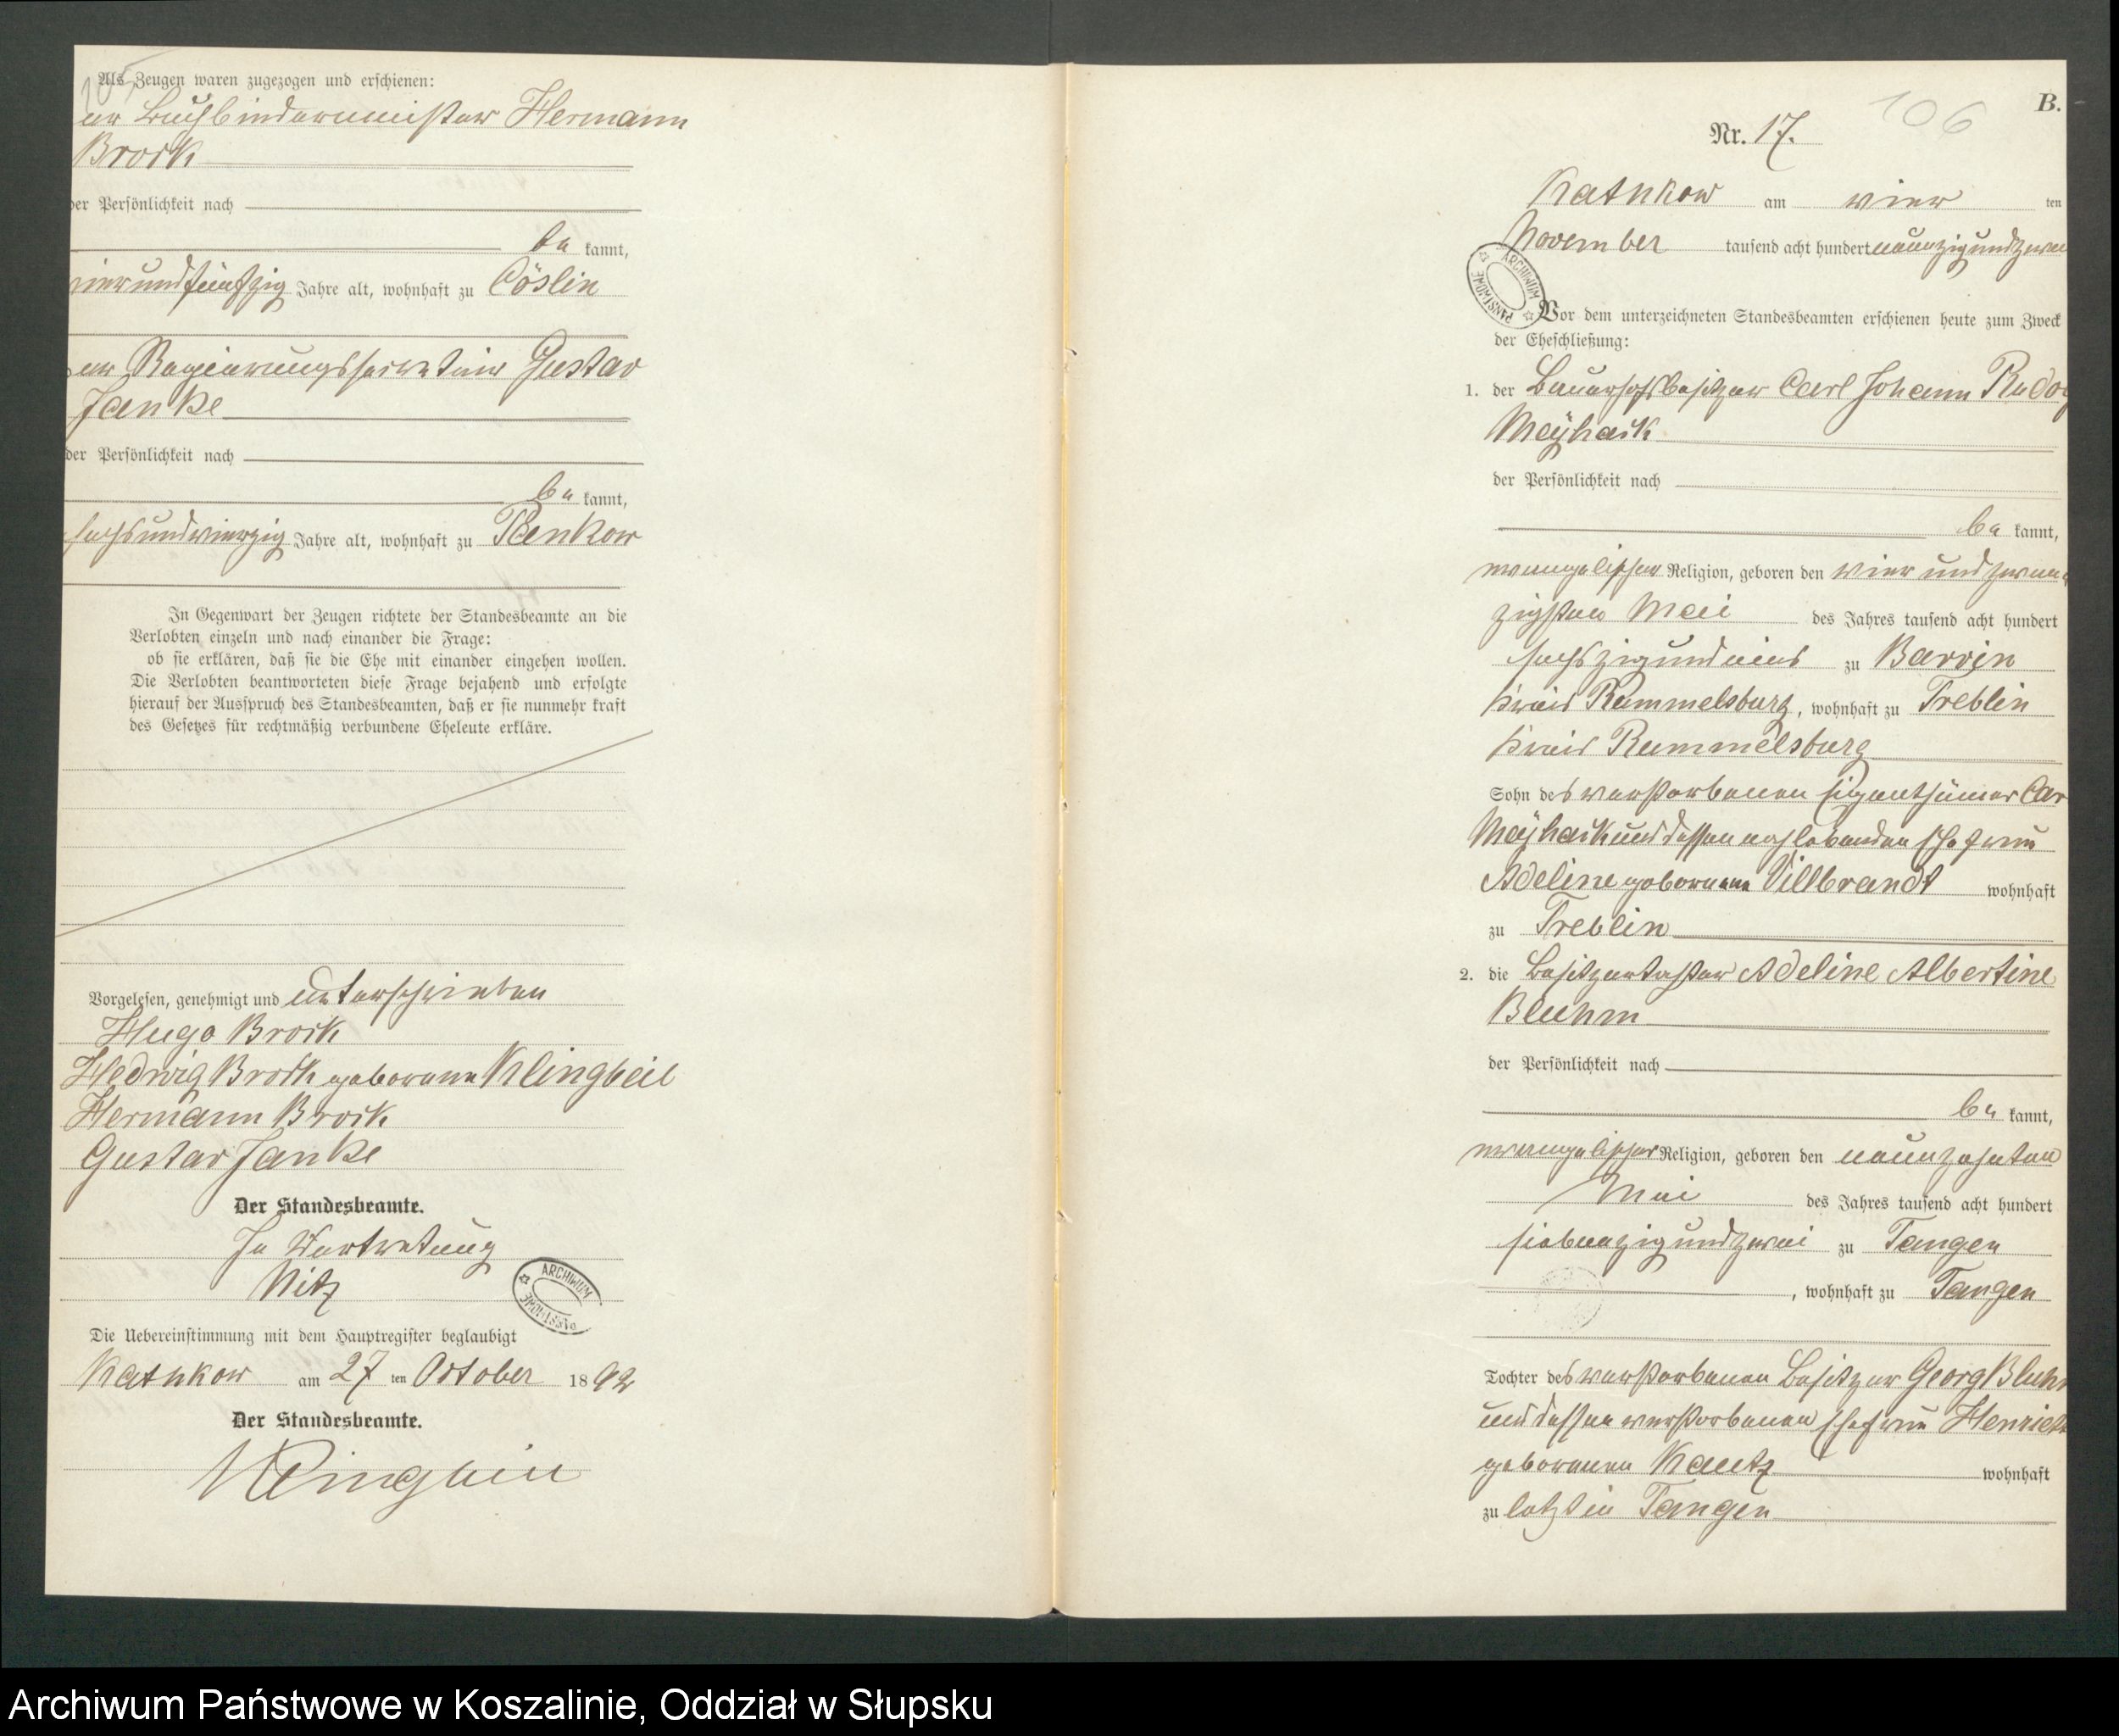 105
Als Zeugen waren zugezogen und erschienen:
er Buchbindermeister Hermann
Brock
der Persönlichkeit nach
be kannt,
vierundfünfzig Jahre alt, wohnhaft zu Cöslin
er Regierungssecretair Gustav
Janke
der Persönlichkeit nach
be kannt,
sechsundvierzig Jahre alt, wohnhaft zu
In Gegenwart der Zeugen richtete der Standesbeamte an die
Verlobten einzeln und nach einander die Frage:
ob sie erklären, daß sie die Ehe mit einander eingehen wollen.
Die Verlobten beantworteten diese Frage bejahend und erfolgte
hierauf der Ausspruch des Standesbeamten, daß er sie nunmehr kraft
des Gesetzes für rechtmäßig verbundene Eheleute erkläre.
Vorgelesen, genehmigt und unterschrieben
Hugo Brock
Hedwig Brock geborene Klingbeil
Hermann Brock
Gustav Janke
Der Standesbeamte.
In Vertretung
Nitz
ARCHIWUM PAŃSTWOWE
Die Uebereinstimmung mit dem Hauptregister beglaubigt
Kathkow am 27 ten October 18 92
Der Standesbeamte.
B.
106
Nr. 17.
Kathkow am vier ten
November tausend acht hundert neunzigundzwei
ARCHIWUM PAŃSTWOWE
Vor dem unterzeichneten Standesbeamten erschienen heute zum Zweck
der Eheschließung:
1. der Bauerhofsbesitzer Carl Johann Rudol
Meÿhack
der Persönlichkeit nach
be kannt,
evangelischer Religion, geboren den vier und zwan
zigsten Mai des Jahres tausend acht hundert
sechszigundeins zu Barvin
Kreis Rummelsburg, wohnhaft zu Treblin
Kreis Rummelsburg
Sohn des verstorbenen Eigenthümer Car
Meÿhack und dessen noch lebenden Ehefrau
Adeline geborenen Villbrandt wohnhaft
zu Treblin
2. die Besitzertochter Adeline Albertine
Bluhm
der Persönlichkeit nach
be kannt,
evangelischer Religion, geboren den neunzehnten
Mai des Jahres tausend acht hundert
siebenzigundzwei zu Tangen
, wohnhaft zu Tangen
Tochter des verstorbenen Besitzer Georg Bluhm
und dessen verstorbenen Ehefrau Henriett
geborenen Kautz wohnhaft
zu letzt in Tangen
Archiwum Państwowe w Koszalinie, Oddział w Słupsku